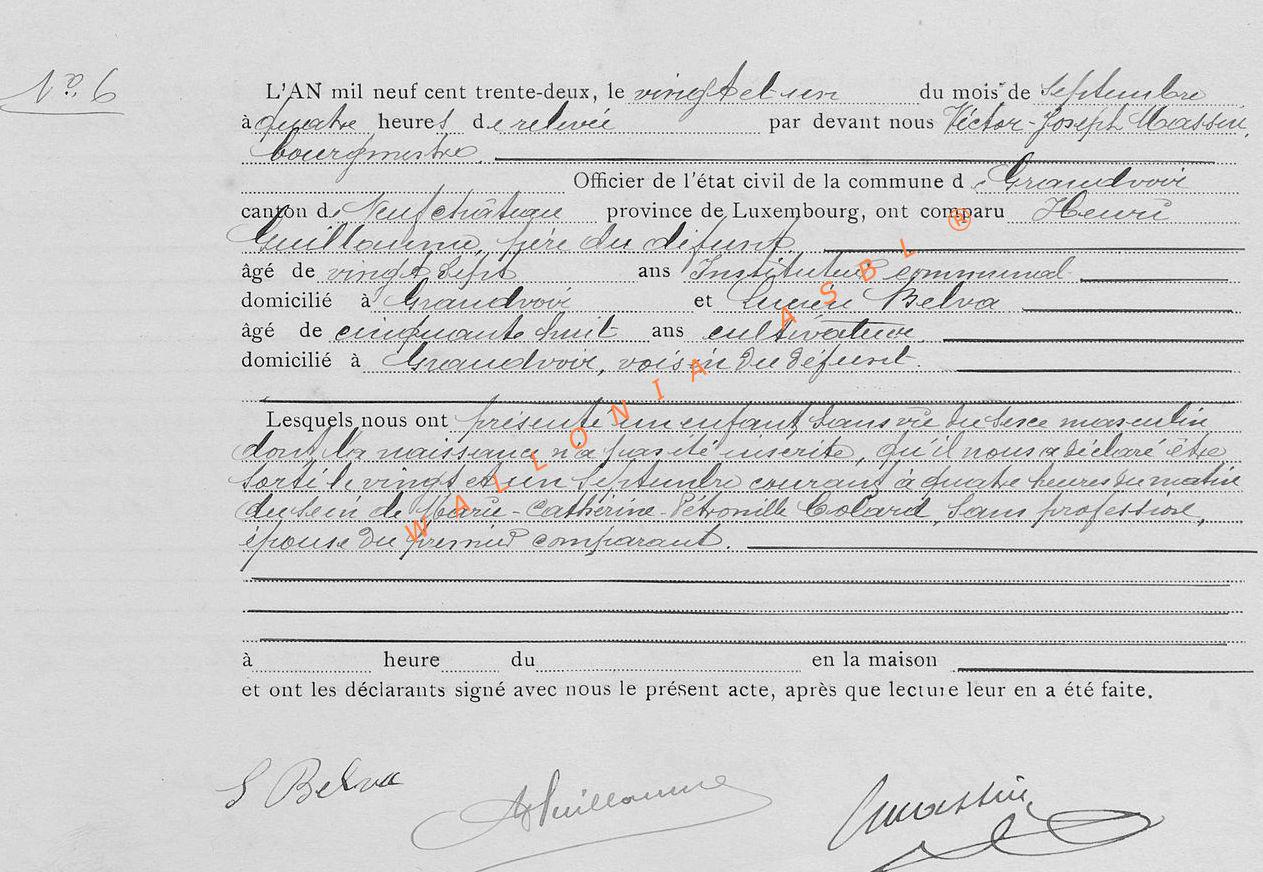 No. 6
L'AN mil neuf cent trente-deux, le vingt et un du mois de Septembre
à quatre heures de relevée par devant nous Victor-Joseph Massin,
bourgmestre.
Officier de l'état civil de la commune de Grandvoir
canton de Neufchâteau province de Luxembourg, ont comparu Henri
Guillaume, père du défunt
âgé de vingt sept ans Instituteur communal
domicilié à Grandvoir et Lucien Belva
âgé de cinquante huit ans cultivateur,
domicilié à Grandvoir, voisin du défunt.
Lesquels nous ont présenté un enfant sans vie du sexe masculin
dont la naissance n'a pas été inscrite, qu'il nous a déclaré être
sorti le vingt et un Septembre courant à quatre heures du matin
du sein de Marie-Catherine-Pétronille Colard, sans profession,
épouse du premier comparant.
à heure du en la maison
et ont les déclarants signé avec nous le présent acte, après que lecture leur en a été faite.
WALLONIA ASBL ®
Belva Guillaume Massin